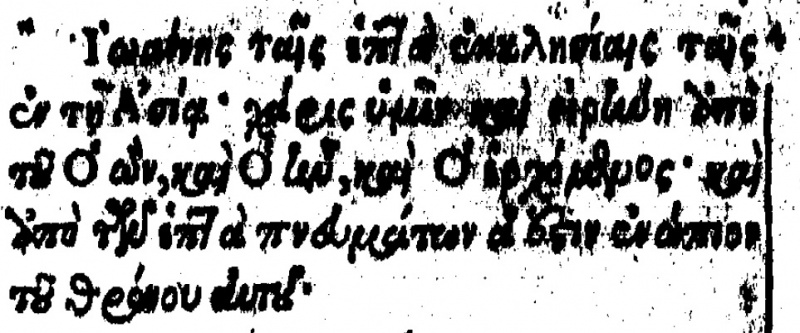 Ἰωάννης ταῖς ἑπτὰ ἐκκλησίαις ταῖς
ἐν τῇ Ἀσίᾳ· χάρις ὑμῖν καὶ εἰρήνη ἀπὸ
τοῦ Ὁ ὢν, καὶ Ὁ ἦν, καὶ Ὁ ἐρχόμενος· καὶ
ἀπὸ τῶν ἑπτὰ πνευμάτων ἅ ἐστιν ἐνώπιον
τοῦ θρόνου αὐτοῦ·